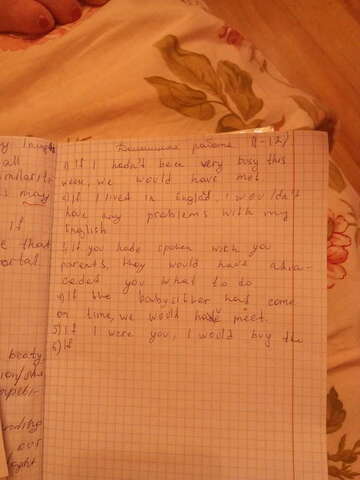 Домашная работа (1-12)
1) If I hadn't been very busy this
week, we would have met
2) If I lived in Englad, I wouldn't
have any problems with my
English
3) If you habe spoken with you
parents, they would have adva-
ceded you what to do
4) If the babysitter had come
on time, we would have meet.
5) If I were you, I would buy the
6) If
all
similarit
may
If
e that
ortal
beaty,
our